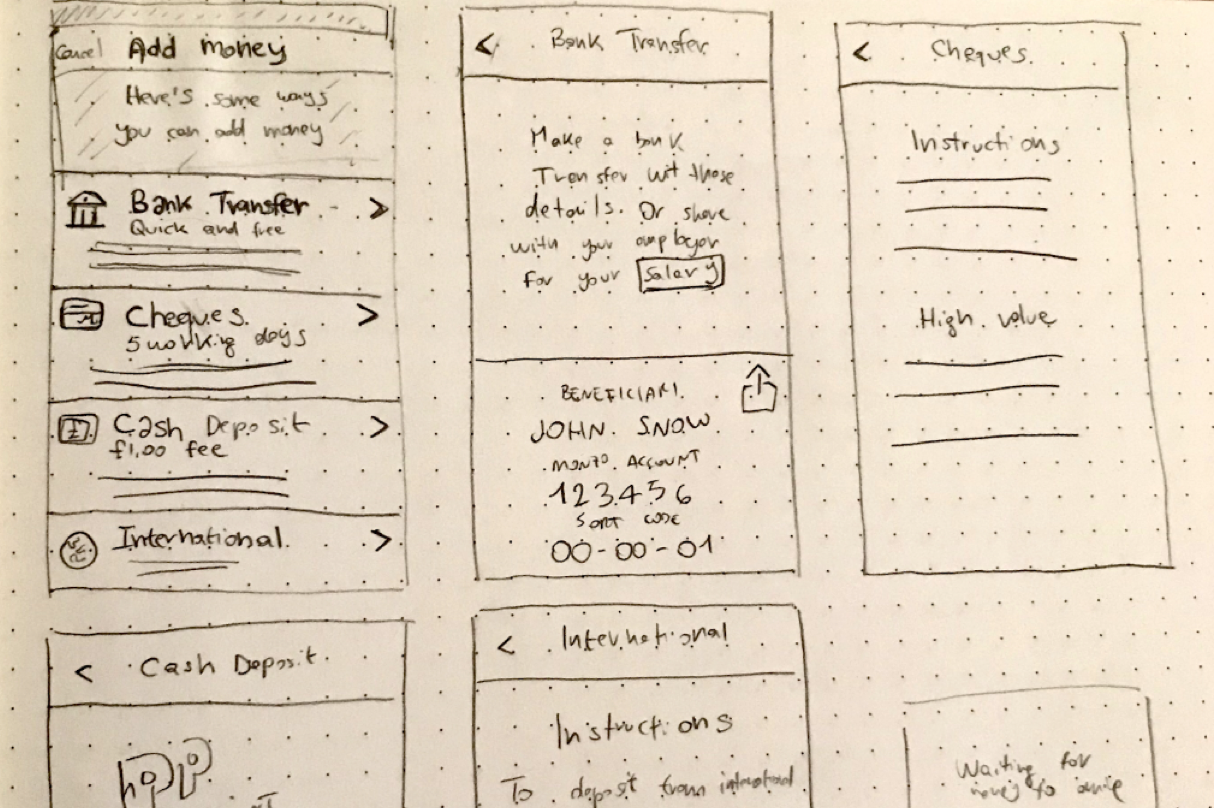 Cancel Add money
Here's some ways
you can add money
Bank Transfer
Quick and free
Cheques.
5 working days
£
Cash Deposit
£1,00 fee
International
< Bank Transfer
Make a bank
Transfer wit those
details. Or share
with your employer
for your Salary
BENEFICIARI.
JOHN SNOW
MONZO ACCOUNT
123456
SORT CODE
00-00-01
< Cheques.
Instructions
High value
< Cash Deposit
< International
Instructions
To deposit from
Waiting for
money to